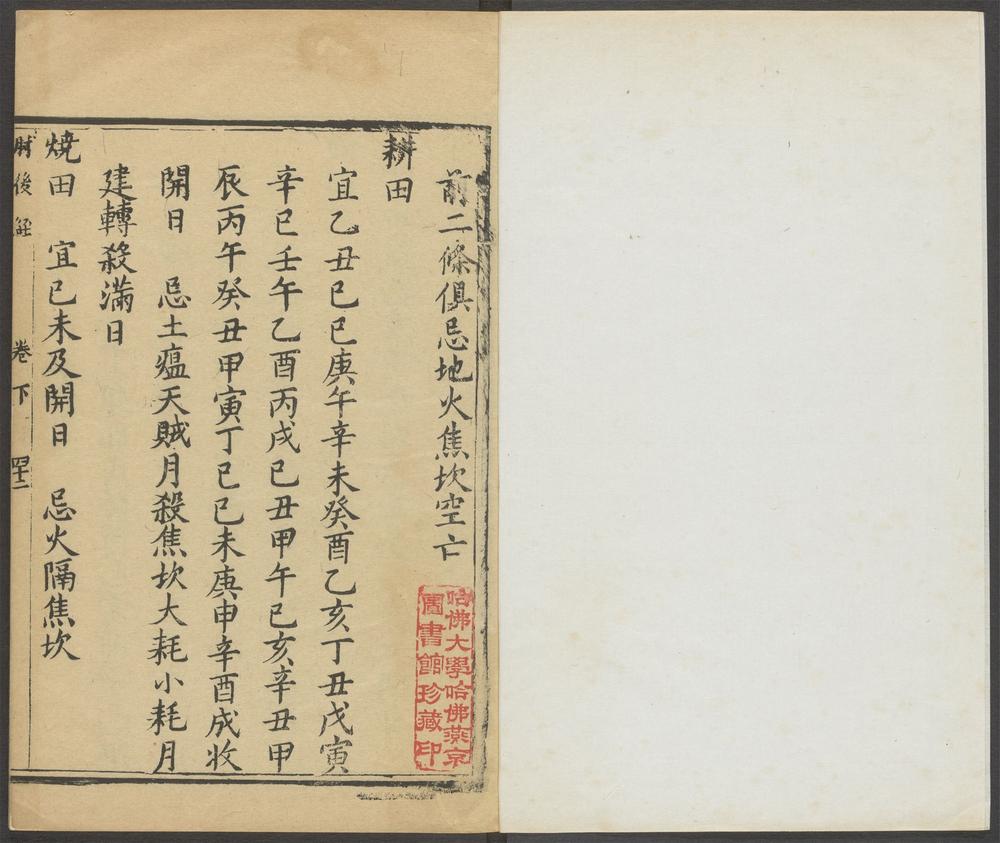 前二條俱忌地火焦坎空亡
耕田
宜乙丑己巳庚午辛未癸酉乙亥丁丑戊寅
辛巳壬午乙酉丙戌己丑甲午己亥辛丑甲
辰丙午癸丑甲寅丁巳己未庚申辛酉成收
開日　忌土瘟天賊月殺焦坎大耗小耗月
建轉殺滿日
燒田　宜己未及開日　忌火隔焦坎
肘後經　卷下　四十二
哈佛大學哈佛燕京
圖書館珍藏印